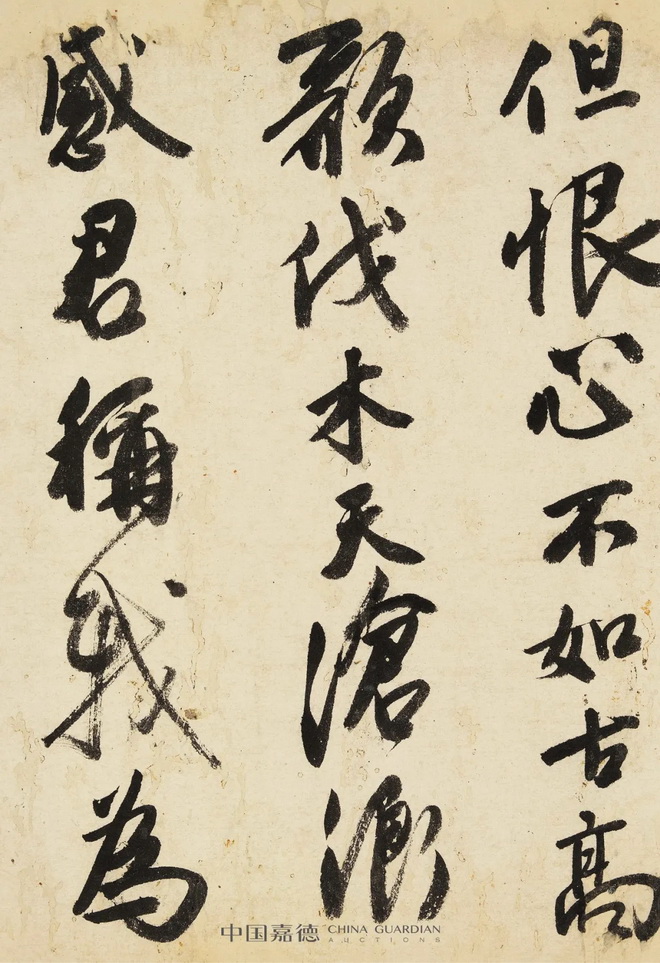 但恨心不如古高
歌伐木天滄
感君稱我為
中国嘉德 CHINA GUARDIAN AUCTIONS